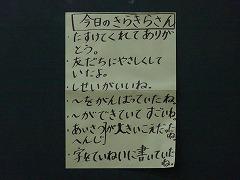 今日のきらきらさん
・たすけてくれてありが
とう。
・友だちにやさしくして
いたよ。
・しせいがいいね。
・〜をがんばっていたね。
・〜ができていてすごいね。
・あいさつ
へんじ
が大きいこえだよね。
・字をていねいに書いていたね。